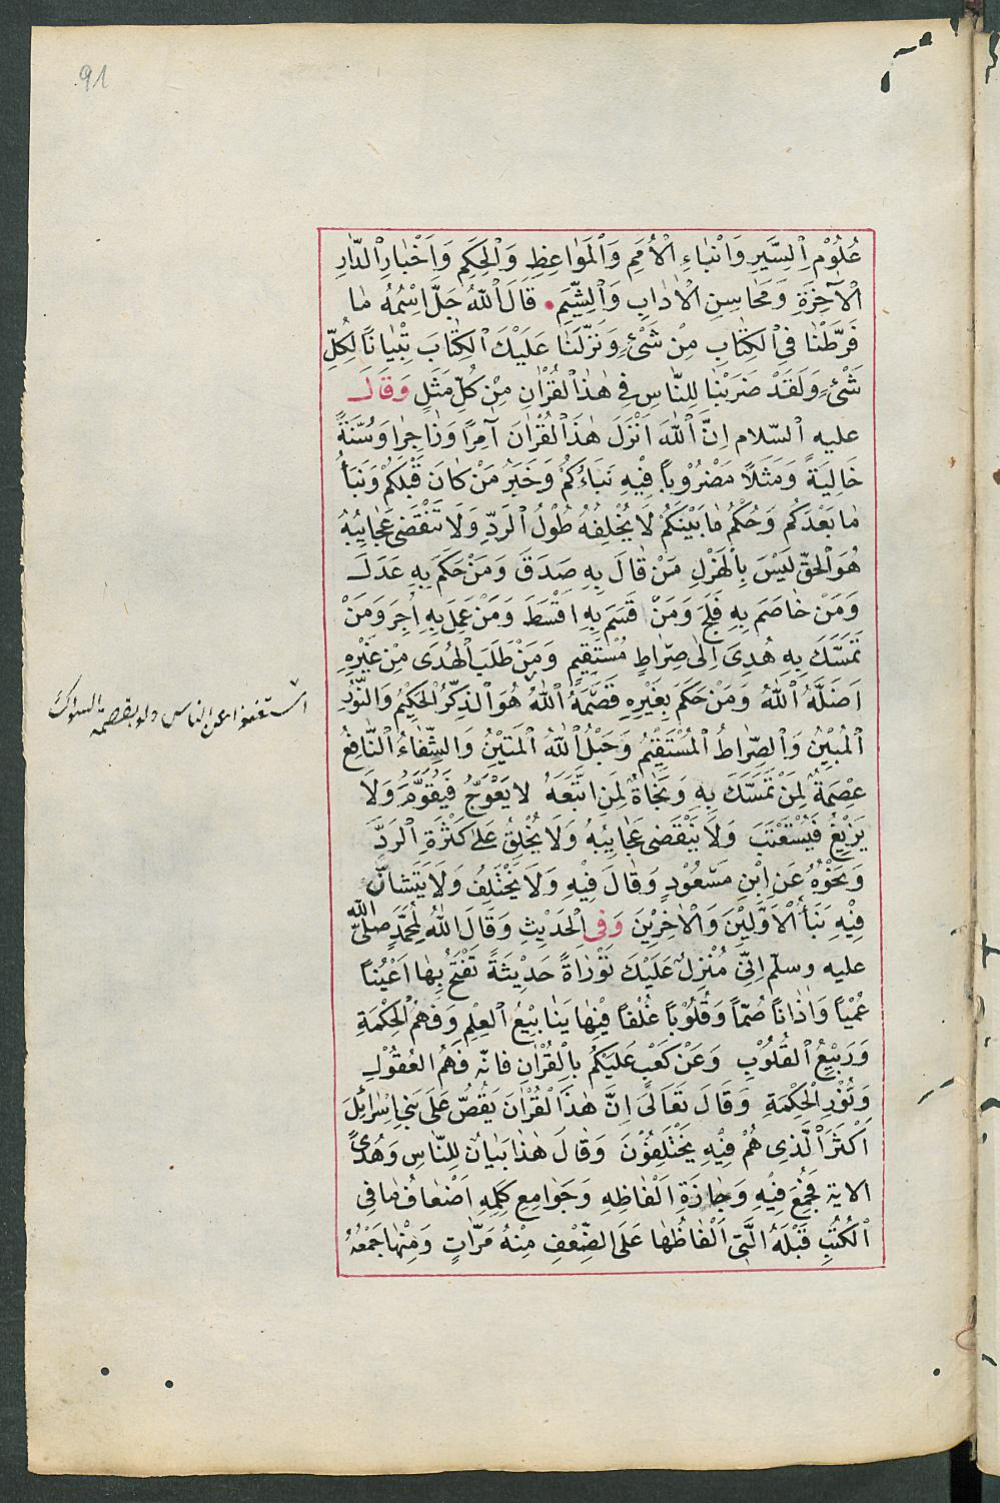 91
عُلُوْمِ اْلسِّيَرِ وَاَنْبٰاءِ الْاُمَمِ وَالْمَوٰاعِظِ وَالْحِكَمِ وَاَخْبٰارِ الدّٰارِ
الْاٰخِرَةِ وَمَحٰاسِنِ الْاٰدٰابِ وَالشِّيَمِ • قَالَ اللّٰهُ جَلَّ اسْمُهُ مٰا
فَرَّطْنٰا فِى الْكِتٰابِ مِنْ شَىْءٍ وَنَزَّلْنٰا عَلَيْكَ الْكِتٰابَ تِبْيٰانًا لِكُلِّ
شَىْءٍ وَلَقَدْ ضَرَبْنٰا لِلنّٰاسِ فِى هٰذَا الْقُرْاٰنِ مِنْ كُلِّ مَثَلٍ وَقٰالَ
عليه السّلام اِنَّ اللّٰهَ اَنْزَلَ هٰذَا الْقُرْاٰنَ آمِرًا وَزٰاجِرًا وَسُنَّةً
خَالِيَةً وَمَثَلًا مَضْرُوْبًا فِيْهِ نَبَاءُكُمْ وَخَبَرُ مَنْ كٰانَ قَبْلَكُمْ وَنَبَأُ
مٰا بَعْدَكُمْ وَحُكْمُ مٰا بَيْنَكُمْ لَا يُخْلِقُهُ طُوْلُ الرَدِّ وَلَا تَنْقَضِى عَجٰايِبُهُ
هُوَ الْحَقُّ لَيْسَ بِالْهَزْلِ مَنْ قٰالَ بِهِ صَدَقَ وَمَنْ حَكَمَ بِهِ عَدَلَ
وَمَنْ خٰاصَمَ بِهِ فَلَجَ وَمَنْ قَسَمَ بِهِ اَقْسَطَ وَمَنْ عَمِلَ بِهِ اُجِرَ وَمَنْ
تَمَسَّكَ بِهِ هُدِىَ اِلٰى صِرٰاطٍ مُسْتَقِيمٍ وَمَنْ طَلَبَ الْهُدَى مِنْ غَيْرِهِ
اَضَلَّهُ اللّٰهُ وَمَنْ حَكَمَ بِغَيْرِهِ قَصَمَهُ اللّٰهُ هُوَ الذِكْرُ الْحَكِيْمُ وَالنُّوْرُ
الْمُبِيْنُ وَالصِّرٰاطُ الْمُسْتَقِيْمُ وَحَبْلُ اللّٰهِ الْمَتِيْنُ وَالشِّفٰاءُ النّٰافِعُ
عِصْمَةٌ لِمَنْ تَمَسَّكَ بِهِ وَنَجٰاةٌ لِمَنِ اتَّبَعَهُ لا يَعْوَجُّ فَيُقَوَّمَ وَلَا
يَزِيْغُ فَيُسْتَعْتَبَ وَلَا تَنْقَضِى عَجٰايِبُهُ وَلَا يَخْلِقُ عَلٰى كَثْرَةِ الرَدِّ
وَنَحْوُهُ عَنِ ابْنِ مَسْعُوْدٍ وَقٰالَ فِيْهِ وَلَا يَخْتَلِفُ وَلَا يَتَشٰانُّ
فِيْهِ نَبَأُ الْاَوَّلِيْنَ وَالْاٰخِرِيْنَ وَفِى الْحَدِيْثِ وَقَالَ اللّٰهُ لِمُحَمَّدٍ صلى اللّٰه
عليه وسلّم اِنِّى مُنْزِلٌ عَلَيْكَ تَوْرٰاةً حَدِيْثَةً تَفْتَحُ بِهٰا اَعْيُنًا
عُمْيًا وَاٰذٰانًا صُمًّا وَقُلُوْبًا غُلْفًا فِيْهٰا يَنٰابِيْعُ الْعِلْمِ وَفَهْمُ الْحِكْمَةِ
وَرَبِيْعُ الْقُلُوْبِ وَعَنْ كَعْبٍ عَلَيْكُمْ بِالْقُرْاٰنِ فانّه فَهْمُ الْعُقُوْلِ
وَنُوْرِ الْحِكْمَةِ وَقَالَ تَعَالَى اِنَّ هٰذَا الْقُرْاٰنَ يَقُصُّ عَلَى بَنِى اِسْرٰائِلَ
اَكْثَرَ الَّذِى هُمْ فِيْهِ يَخْتَلِفُوْنَ وَقٰالَ هٰذٰا بَيٰانٌ لِلنّٰاسِ وَهُدًى
الاية فَجُمِعَ فِيْهِ وَجٰازَةِ اَلْفٰاظِهِ وَجَوٰامِعِ كَلِمِهِ اَضْعٰافُ مٰا فِى
الْكُتُبِ قَبْلَهُ الَّتِى اَلْفٰاظُهٰا عَلَى الضِّعْفِ مِنْهُ مَرّٰاتٍ وَمِنْهٰا جَمْعُهُ
استغنوا عن الناس ولو بقصمة السواك